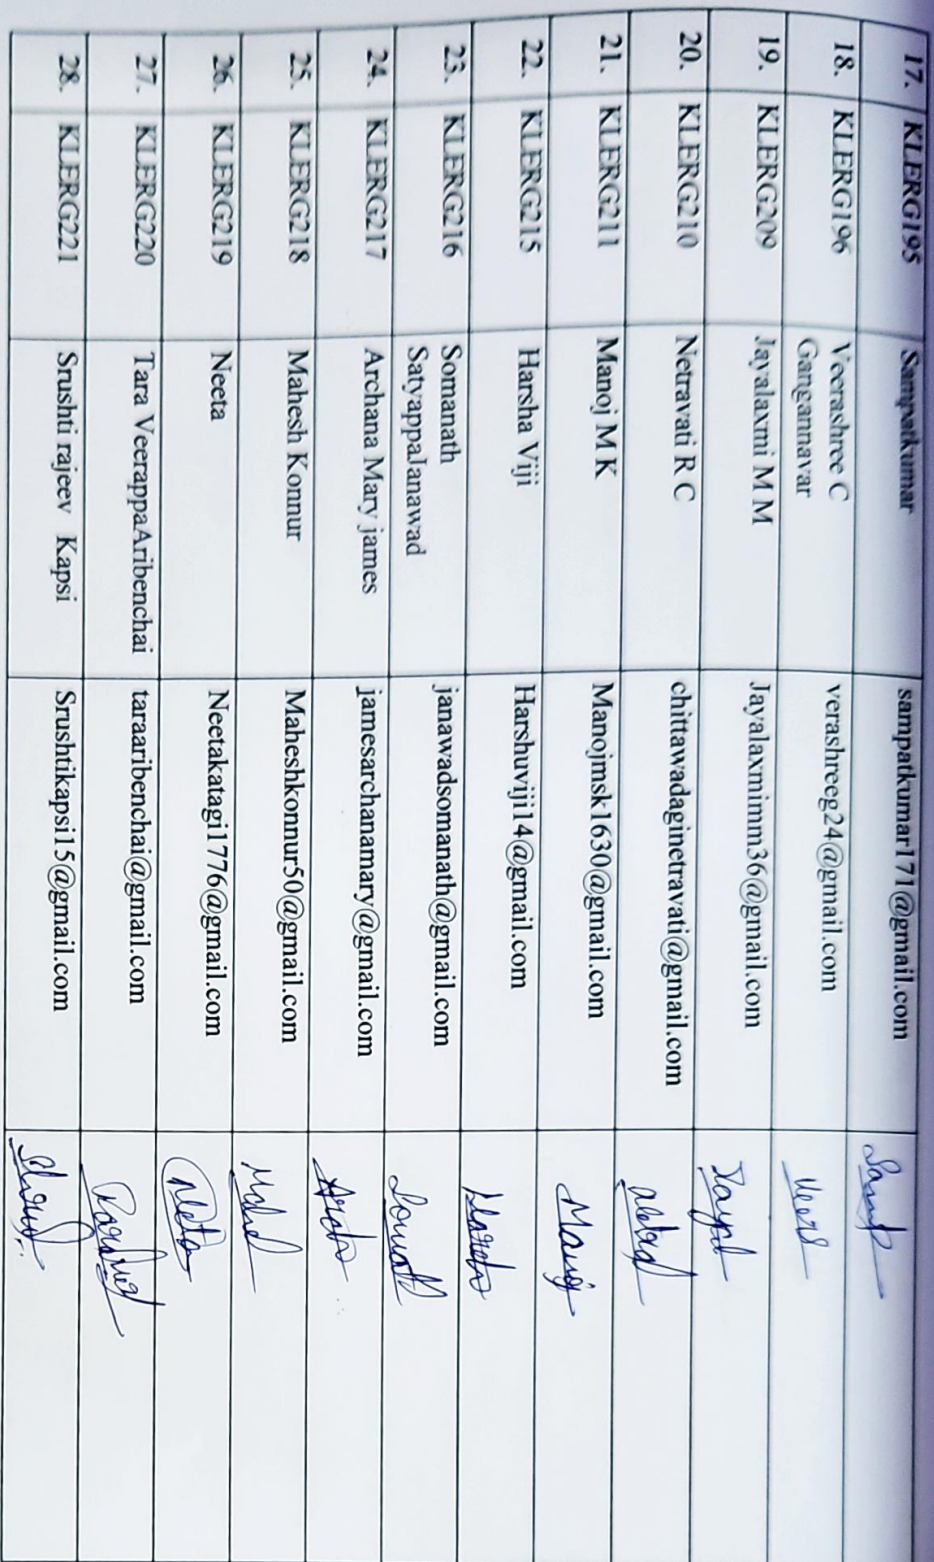 17. KLERG195 Sampatkumar sampatkumar171@gmail.com
18. KLERG196 Veerashree C verashreeg24@gmail.com
Gangannavar
19. KLERG209 Jayalaxmi M M Jayalaxmimm36@gmail.com
20. KLERG210 Netravati R C chittawadaginetravati@gmail.com
21. KLERG211 Manoj M K Manojmsk1630@gmail.com
22. KLERG215 Harsha Viji Harshuviji14@gmail.com
23. KLERG216 Somanath janawadsomanath@gmail.com
SatyappaJanawad
24. KLERG217 Archana Mary james jamesarchanamary@gmail.com
25. KLERG218 Mahesh Konnur Maheshkonnur50@gmail.com
26. KLERG219 Neeta Neetakatagi1776@gmail.com
27. KLERG220 Tara VeerappaAribenchai taraaribenchai@gmail.com
28. KLERG221 Srushti rajeev Kapsi Srushtikapsi15@gmail.com